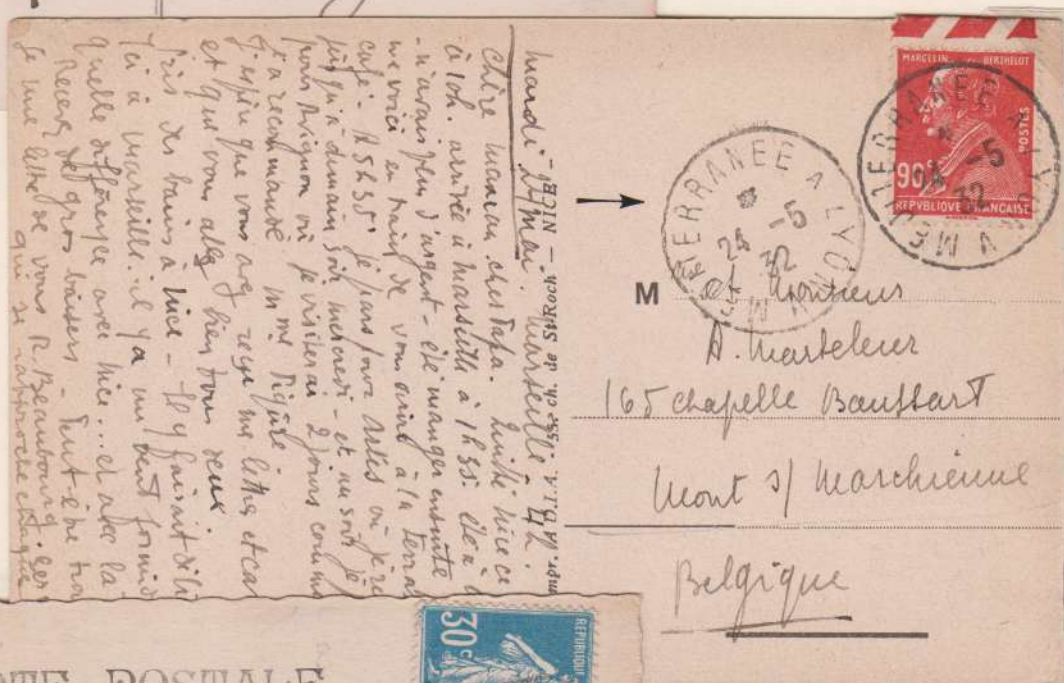 mardi - mai. Marseille - 4 h.
chère maman, cher Papa. Quitté Nice ce
à 10h. arrivée à Marseille à 1h35. été à
n'avais peu d'argent - été manger ensuite
me voici en train de vous écrire à la terrasse
café. A 5h35 je pars pour Arles où je re
jusqu'à demain soir mercredi - et au soir je
pour Avignon où je visiterai 2 jours comme
l'a recommandé Mme
J'espère que vous avez reçu ma lettre et car
et que vous allez bien tous deux.
Pris des bains à Nice - Il y faisait déli
Ici à Marseille. il y a un vent formid
quelle différence avec Nice... et avec la
Recevez de gros baisers - Peut-être trou
je une lettre de vous R. Beaubourg. ser
qui se rapproche chaque
Impr. A.D.I.A. ch. de St Roch - NICE
MEDITERRANEE A LYON
24 -5
32
MEDITERRANEE A LYON
24 -5
32
MARCELIN BERTHELOT
POSTES
90c
REPVBLIQVE FRANÇAISE
M et Monsieur
A. Marteleur
165 chapelle Baussart
Mont s/ Marchienne
Belgique
POSTALE
30c
REPUBLIQUE